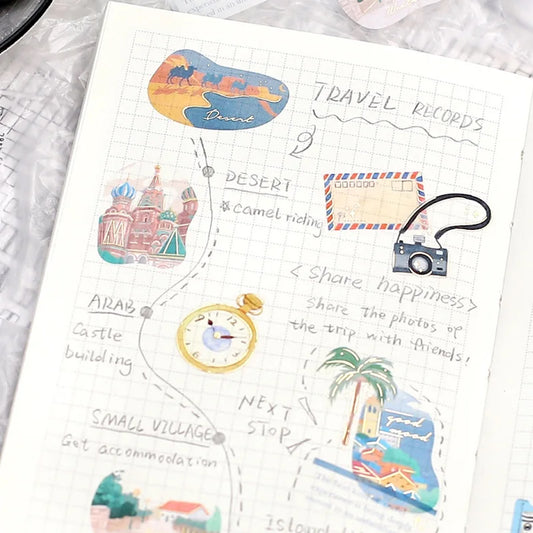 Desert
TRAVEL RECORDS
DESERT
*camel riding
<Share happiness>
Share the photos of
the trip with friends!
ARAB
Castle
building
NEXT
STOP
good
mood
SMALL VILLAGE
Get accommodation
Island